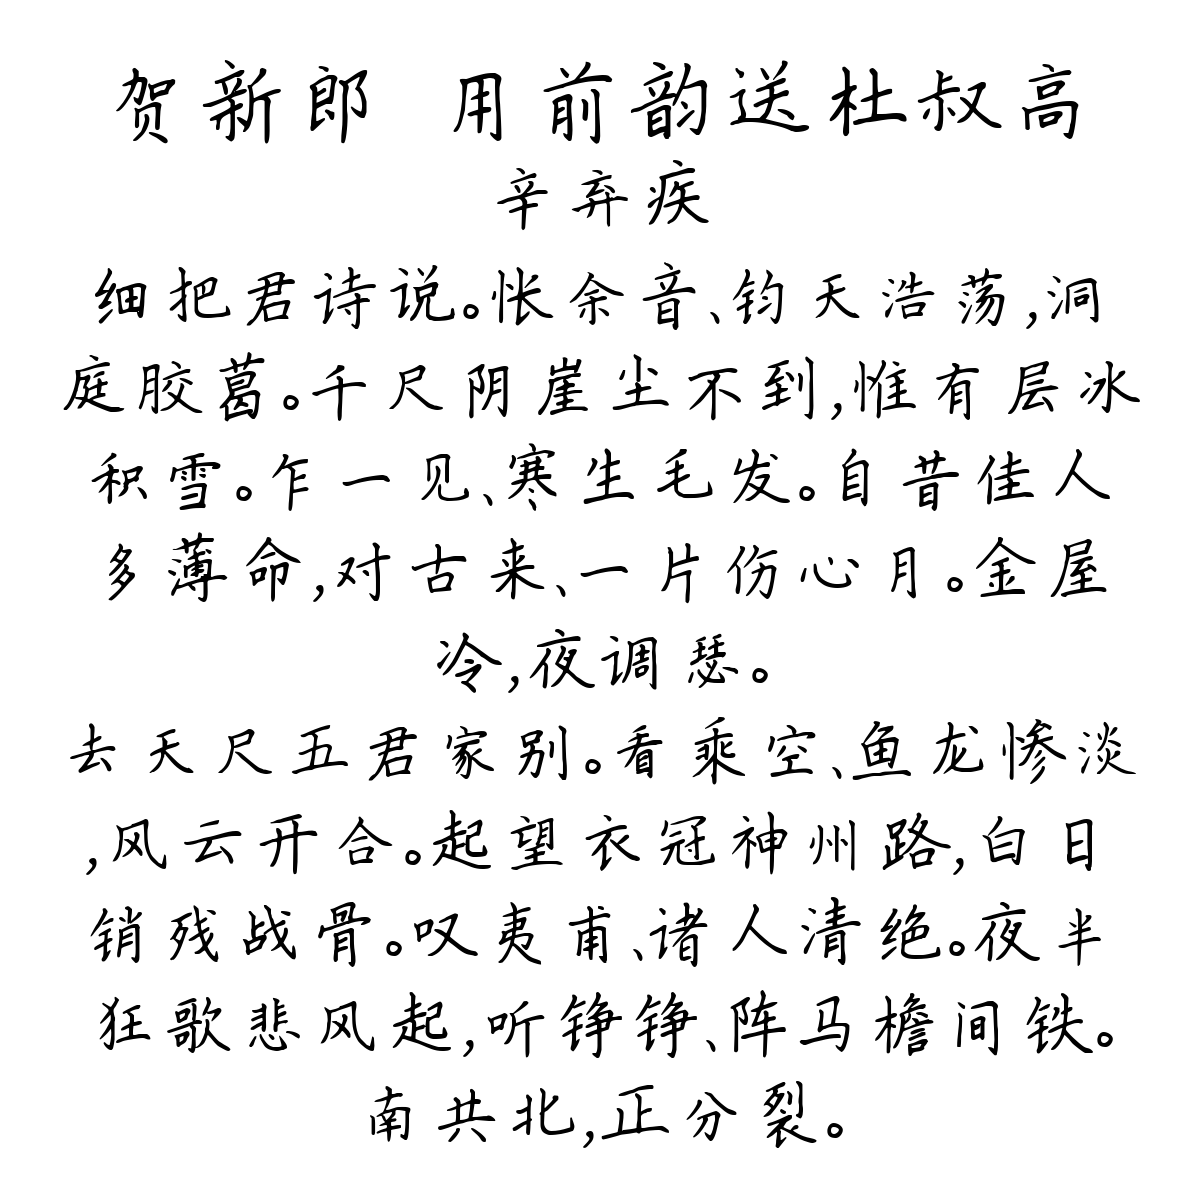 贺新郎 用前韵送杜叔高
辛弃疾
细把君诗说。怅余音、钧天浩荡,洞
庭胶葛。千尺阴崖尘不到,惟有层冰
积雪。乍一见、寒生毛发。自昔佳人
多薄命,对古来、一片伤心月。金屋
冷,夜调瑟。
去天尺五君家别。看乘空、鱼龙惨淡
,风云开合。起望衣冠神州路,白日
销残战骨。叹夷甫、诸人清绝。夜半
狂歌悲风起,听铮铮、阵马檐间铁。
南共北,正分裂。